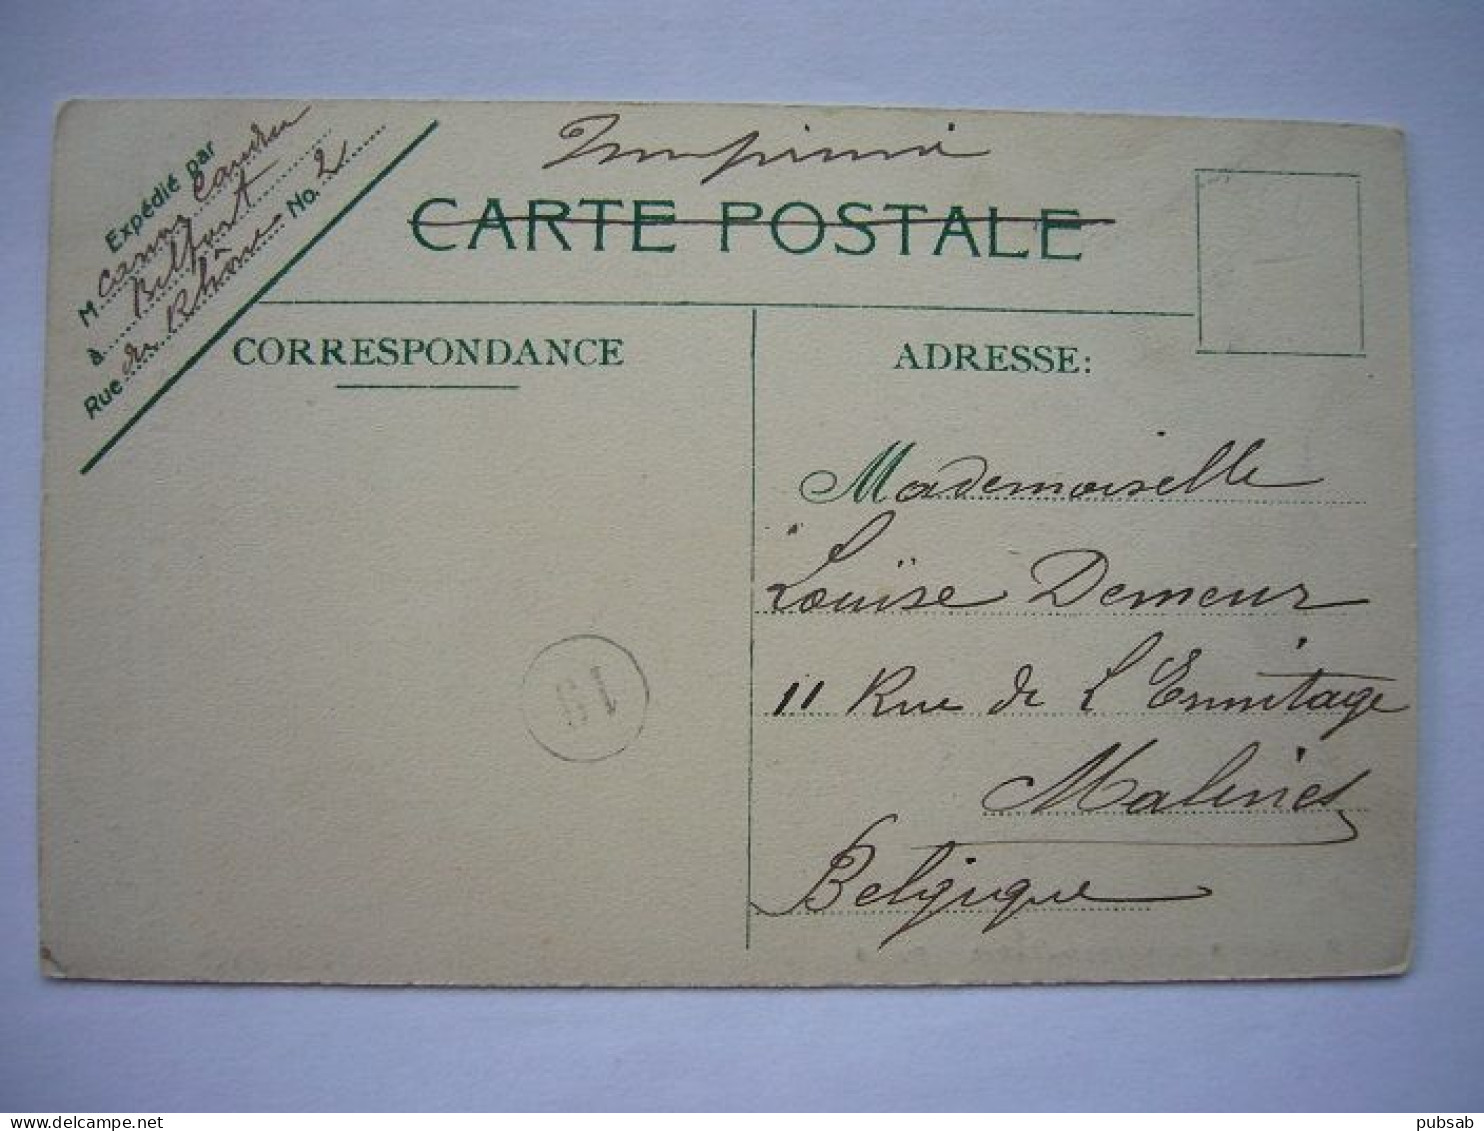 Imprimé
CARTE POSTALE
Expédié par
M Camus
à Belfort
Rue du Rhône No. 2
CORRESPONDANCE
ADRESSE:
Mademoiselle
Louïse Demeur
11 Rue de L'Ermitage
Malines
Belgique
pubsab